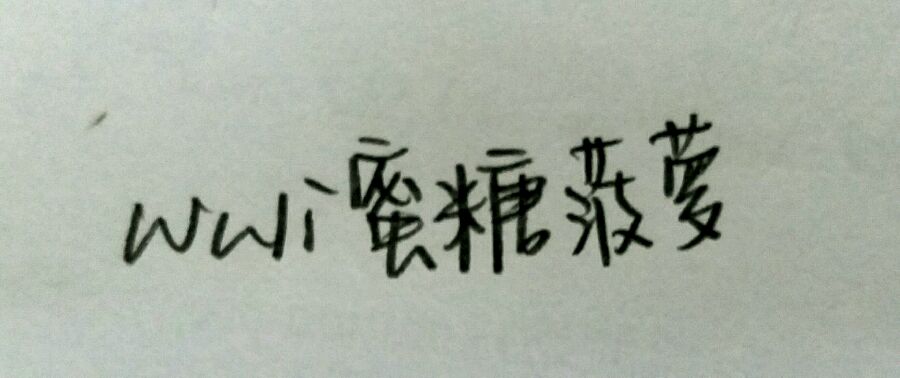 wwi蜜糖菠萝